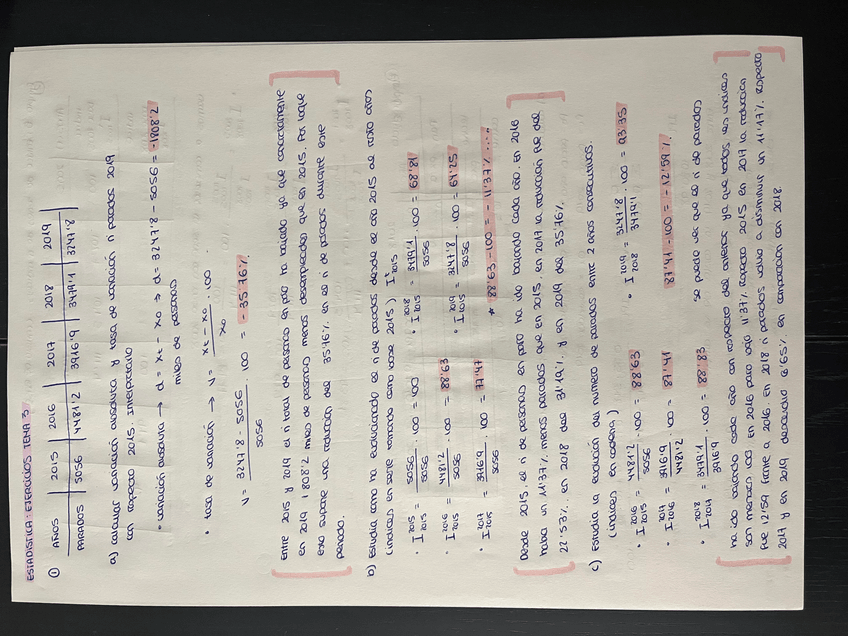 ESTADÍSTICA: EJERCICIOS TEMA 3.
① AÑOS | 2015 | 2016 | 2017 | 2018 | 2019
PARADOS | 5056 | 4481'2 | 3916'9 | 3479'1 | 3247'8
a) calcular variación absoluta y tasa de variación n parados 2019
con respecto 2015. Interpretarlo
• variación absoluta → d = xt - x0 ⇒ d = 3247'8 - 5056 = -1808'2
miles de personas
• tasa de variación → V = xt - x0 / x0 · 100
V = 3247'8 - 5056 / 5056 · 100 = -35'76%
Entre 2015 y 2019 el n total de personas en paro ha bajado ya que concretamente
en 2019 1808'2 miles de personas menos desempleadas que en 2015. Por lo que
eso supone una reducción del 35'76% en el n de parados durante este
periodo.
b) Estudia como ha evolucionado el n de parados desde el año 2015 al resto años
(índices en serie tomando como base 2015) I t 2015
• I 2015 2015 = 5056 / 5056 · 100 = 100
• I 2016 2015 = 4481'2 / 5056 · 100 = 88'63
• I 2017 2015 = 3916'9 / 5056 · 100 = 77'47
• I 2018 2015 = 3479'1 / 5056 · 100 = 68'81
• I 2019 2015 = 3247'8 / 5056 · 100 = 64'25
* 88'63 - 100 = -11'37% ....
Desde 2015 el n de personas en paro ha ido bajando cada año. En 2016
había un 11'37% menos parados que en 2015, en 2017 la reducción fue del
22'53%, en 2018 del 31'19% y en 2019 del 35'76%.
c) Estudia la evolución del número de parados entre 2 años consecutivos.
(índices en cadena)
• I 2016 2015 = 4481'2 / 5056 · 100 = 88'63
• I 2017 2016 = 3916'9 / 4481'2 · 100 = 87'41
• I 2018 2017 = 3479'1 / 3916'9 · 100 = 88'83
• I 2019 2018 = 3247'8 / 3479'1 · 100 = 93'35
87'41 - 100 = -12'59%
se puede ver que el n de parados
ha ido bajando cada año con respecto del anterior ya que todos los índices
son menores 100 en 2016 paro bajó 11'37% respecto 2015 en 2017 la reducción
fue 12'59 frente a 2016. En 2018 n parados volvió a disminuir un 11'17% respecto
2017 y en 2019 descendió 6'65% en comparación con 2018.